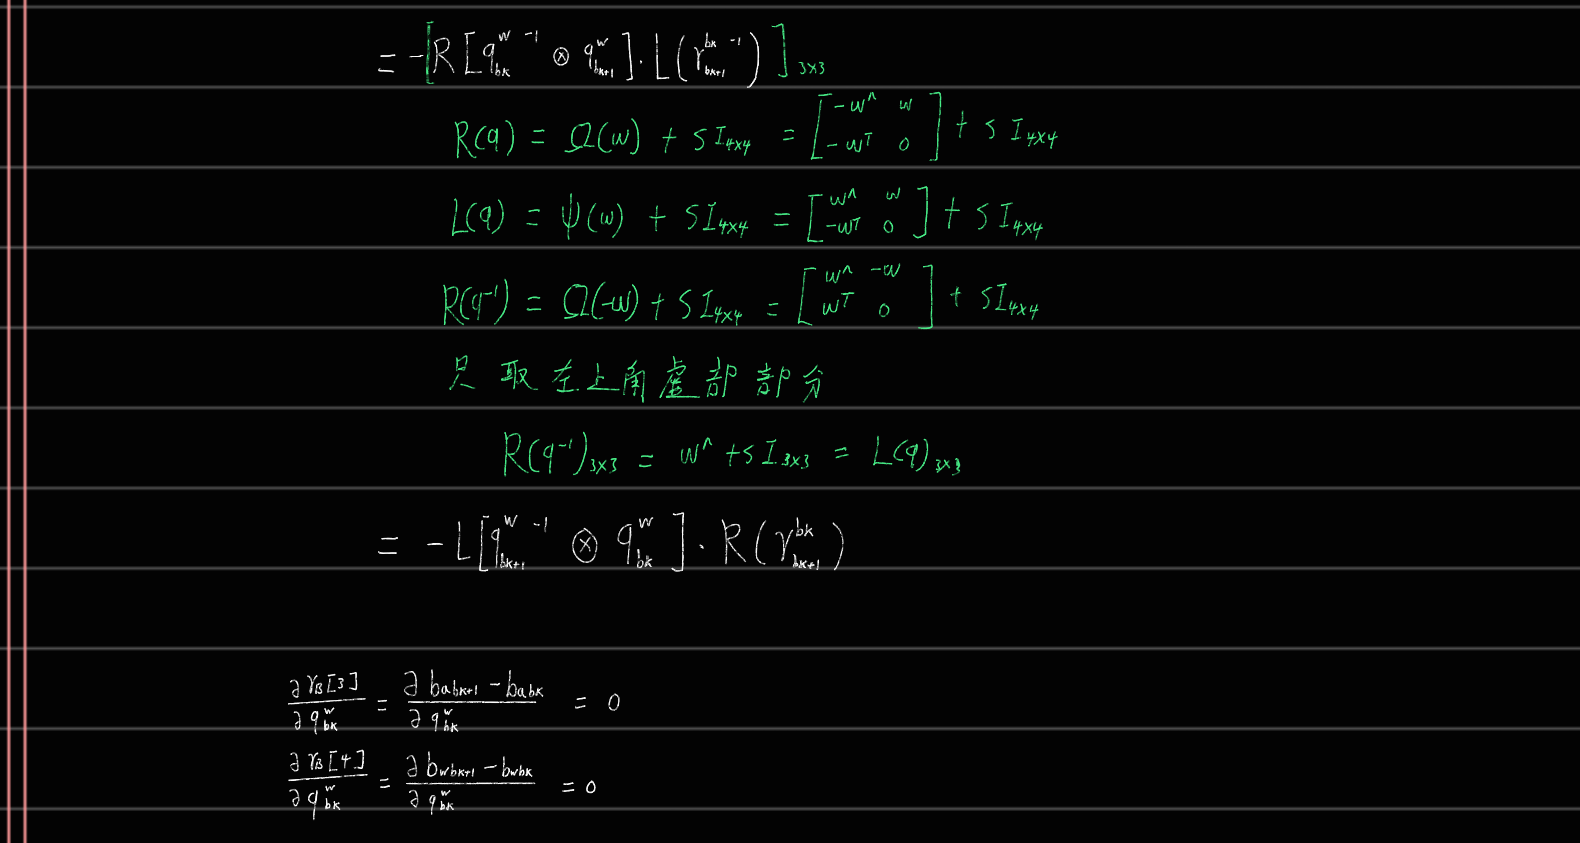 = -[R[q_{bk}^{w -1} ⊗ q_{bk+1}^{w}]·L(γ_{bk+1}^{bk -1})]_{3×3}
R(q) = Ω(w) + S I_{4×4} = [-w^∧ w; -w^T 0] + S I_{4×4}
L(q) = ψ(w) + S I_{4×4} = [w^∧ w; -w^T 0] + S I_{4×4}
R(q^{-1}) = Ω(-w) + S I_{4×4} = [w^∧ -w; w^T 0] + S I_{4×4}
只取左上角虚部部分
R(q^{-1})_{3×3} = w^∧ + S I_{3×3} = L(q)_{3×3}
= -L[q_{bk+1}^{w -1} ⊗ q_{bk}^{w}]·R(γ_{bk+1}^{bk})
∂γ_B[3] / ∂q_{bk}^{w} = ∂b_{abk+1} - b_{abk} / ∂q_{bk}^{w} = 0
∂γ_B[4] / ∂q_{bk}^{w} = ∂b_{wbk+1} - b_{wbk} / ∂q_{bk}^{w} = 0